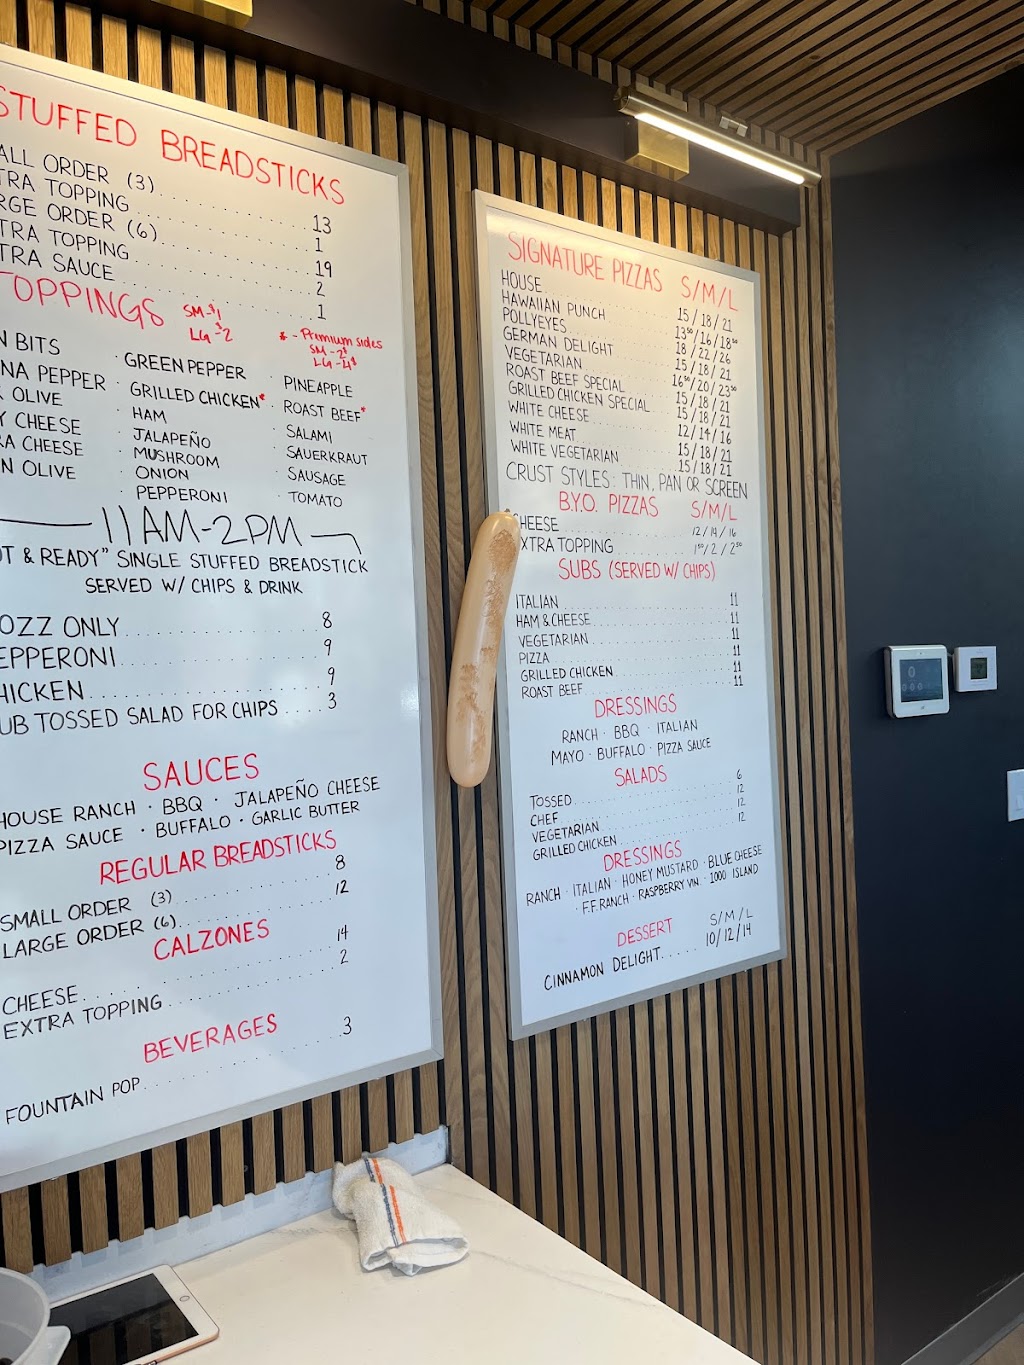 STUFFED BREADSTICKS
ALL ORDER (3) 13
TRA TOPPING 1
RGE ORDER (6) 19
TRA TOPPING 2
TRA SAUCE 1
TOPPINGS SM-$1 LG-$2
* - Premium sides SM-2$ LG-4$
N BITS
NA PEPPER
OLIVE
Y CHEESE
RA CHEESE
N OLIVE
· GREEN PEPPER
· GRILLED CHICKEN*
· HAM
· JALAPEÑO
· MUSHROOM
· ONION
· PEPPERONI
· PINEAPPLE
· ROAST BEEF*
· SALAMI
· SAUERKRAUT
· SAUSAGE
· TOMATO
11AM-2PM
OT & READY" SINGLE STUFFED BREADSTICK
SERVED W/ CHIPS & DRINK
OZZ ONLY 8
EPPERONI 9
HICKEN 9
UB TOSSED SALAD FOR CHIPS 3
SAUCES
HOUSE RANCH · BBQ · JALAPEÑO CHEESE
PIZZA SAUCE · BUFFALO · GARLIC BUTTER
REGULAR BREADSTICKS
SMALL ORDER (3) 8
LARGE ORDER (6) 12
CALZONES
CHEESE 14
EXTRA TOPPING 2
BEVERAGES
FOUNTAIN POP 3
SIGNATURE PIZZAS S/M/L
HOUSE 15/18/21
HAWAIIAN PUNCH 13⁵⁰/16/18⁵⁰
POLLYEYES 18/22/26
GERMAN DELIGHT 15/18/21
VEGETARIAN 16⁵⁰/20/23⁵⁰
ROAST BEEF SPECIAL 15/18/21
GRILLED CHICKEN SPECIAL 15/18/21
WHITE CHEESE 12/14/16
WHITE MEAT 15/18/21
WHITE VEGETARIAN 15/18/21
CRUST STYLES: THIN, PAN OR SCREEN
B.Y.O. PIZZAS S/M/L
CHEESE 12/14/16
XTRA TOPPING 1⁵⁰/2/2⁵⁰
SUBS (SERVED W/ CHIPS)
ITALIAN 11
HAM & CHEESE 11
VEGETARIAN 11
PIZZA 11
GRILLED CHICKEN 11
ROAST BEEF 11
DRESSINGS
RANCH · BBQ · ITALIAN
MAYO · BUFFALO · PIZZA SAUCE
SALADS
TOSSED 6
CHEF 12
VEGETARIAN 12
GRILLED CHICKEN 12
DRESSINGS
RANCH · ITALIAN · HONEY MUSTARD · BLUE CHEESE
· F.F. RANCH · RASPBERRY VIN. · 1000 ISLAND
DESSERT S/M/L
CINNAMON DELIGHT 10/12/14